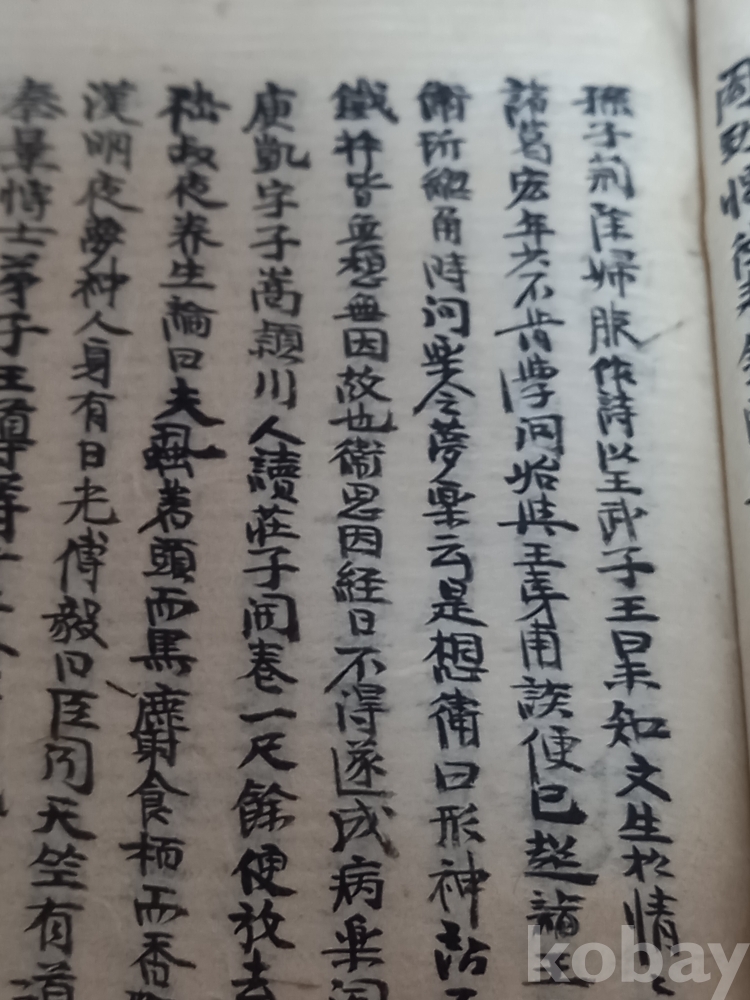 孫子荊除婦服作詩以王武子王曰未知文生於情
諸葛宏年少不肯學问始與王夷甫談便已超詣王
衛玠總角時问楽令夢楽云是想衛曰形神所
鐵杵皆無想無因故也衛思因経日不得遂成病楽闻
庾凱字子嵩潁川人讀莊子開巻一尺餘便放去
嵇叔夜养生論曰夫虱著頭而黒麝食栢而香
漢明夜夢神人身有日光傅毅曰臣闻天竺有道
秦景博士弟子王遵等
kobay